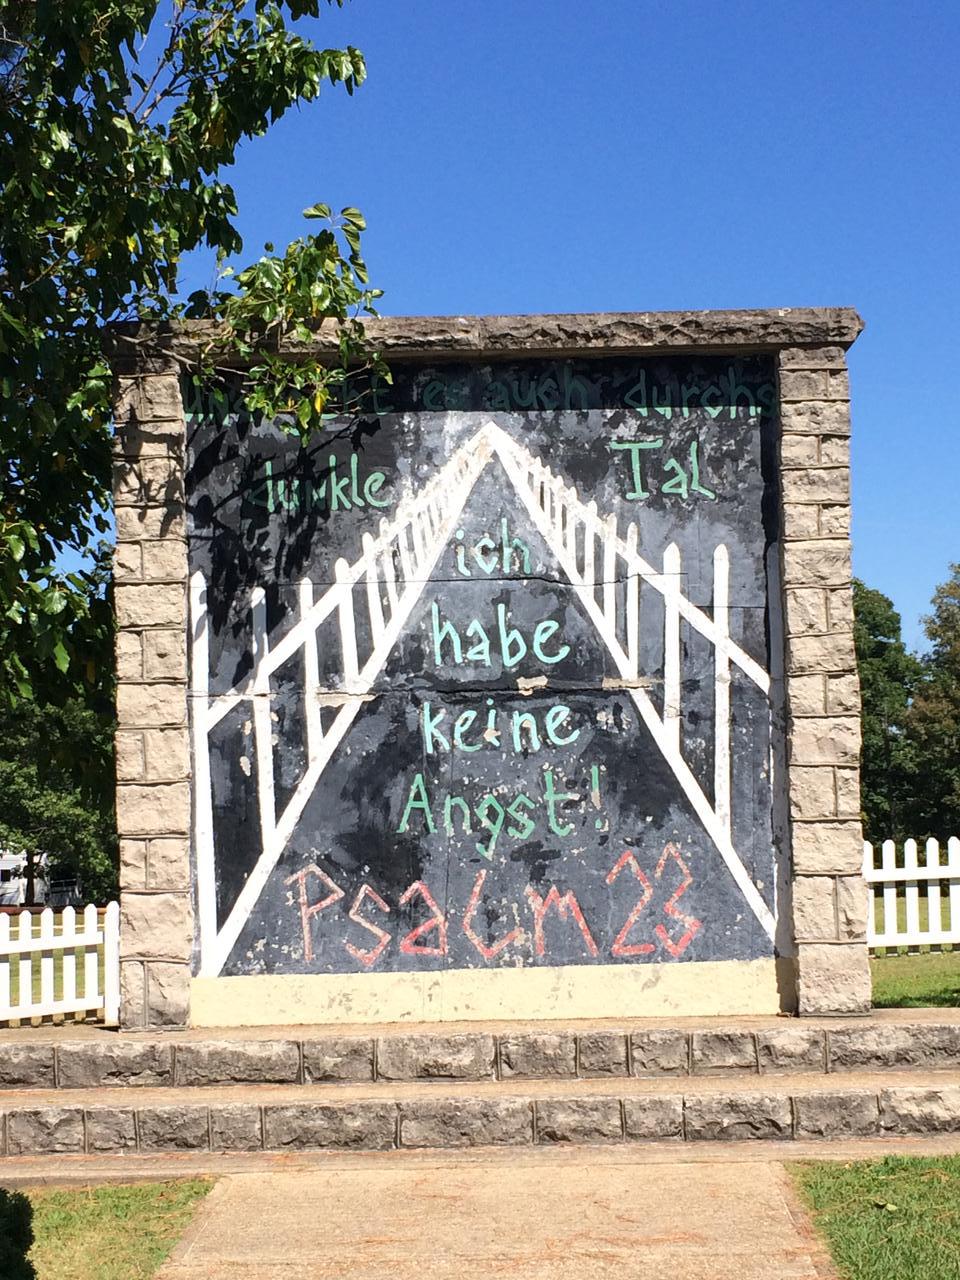 und geht es auch durchs
dunkle Tal
ich
habe
keine
Angst!
Psalm 23